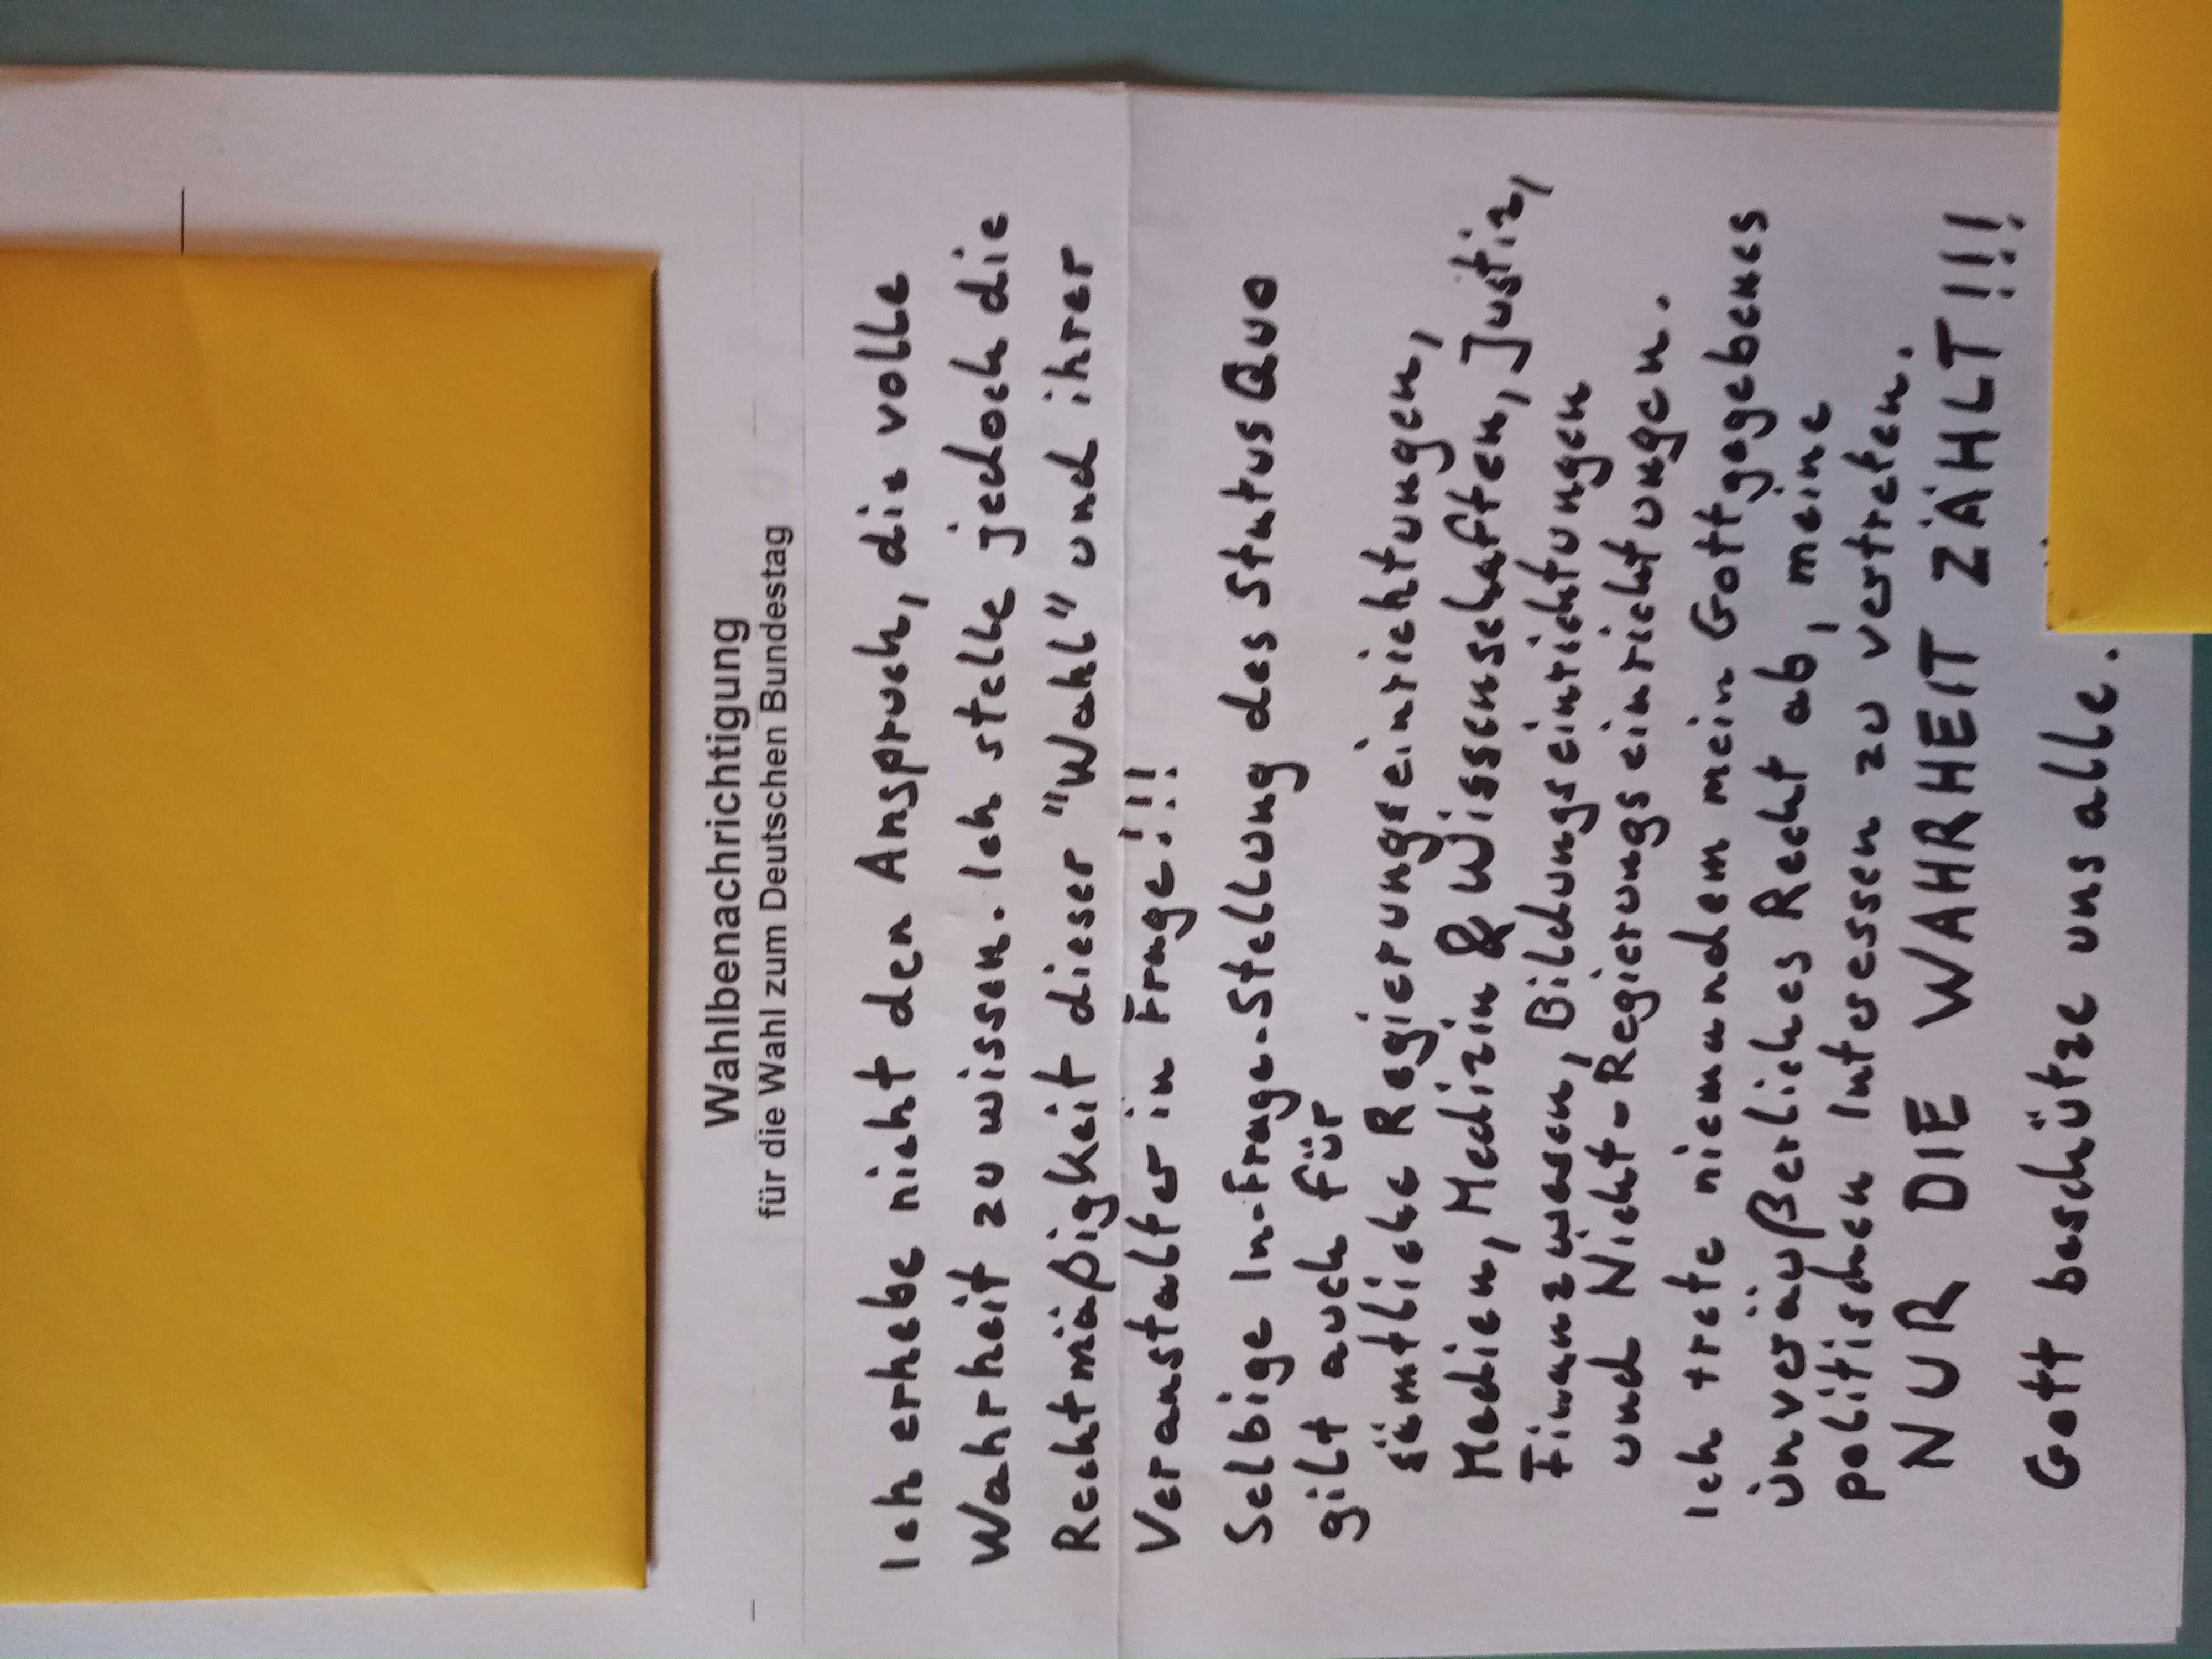 Wahlbenachrichtigung
für die Wahl zum Deutschen Bundestag
Ich erhebe nicht den Anspruch, die volle
Wahrheit zu wissen. Ich stelle jedoch die
Rechtmäßigkeit dieser "Wahl" und ihrer
Veranstalter in Frage!!!
Selbige In-Frage-Stellung des Status Quo
gilt auch für
sämtliche Regierungseinrichtungen,
Medien, Medizin & Wissenschaften, Justiz,
Finanzwesen, Bildungseinrichtungen
und Nicht-Regierungseinrichtungen.
Ich trete niemandem mein Gottgegebenes
unveräußerliches Recht ab, meine
politischen Interessen zu vertreten.
NUR DIE WAHRHEIT ZÄHLT!!!
Gott beschütze uns alle.